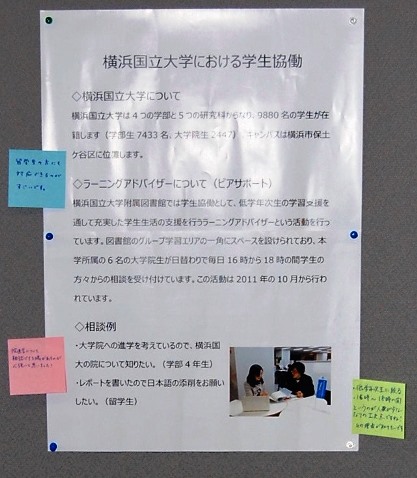 横浜国立大学における学生協働
◇横浜国立大学について
横浜国立大学は４つの学部と５つの研究科からなり、9880 名の学生が在
籍します（学部生 7433 名、大学院生 2447）。キャンパスは横浜市保土
ケ谷区に位置します。
◇ラーニングアドバイザーについて（ピアサポート）
横浜国立大学附属図書館では学生協働として、低学年次生の学習支援を
通して充実した学生生活の支援を行うラーニングアドバイザーという活動を行っ
ています。図書館のグループ学習エリアの一角にスペースを設けられており、本
学所属の 6 名の大学院生が日替わりで毎日 16 時から 18 時の間学生の
方々からの相談を受け付けています。この活動は 2011 年の 10 月から行わ
れています。
◇相談例
・大学院への進学を考えているので、横浜国
大の院について知りたい。（学部 4 年生）
・レポートを書いたので日本語の添削をお願い
したい。（留学生）
留学生の方にも
対応できるのが
すごいです。